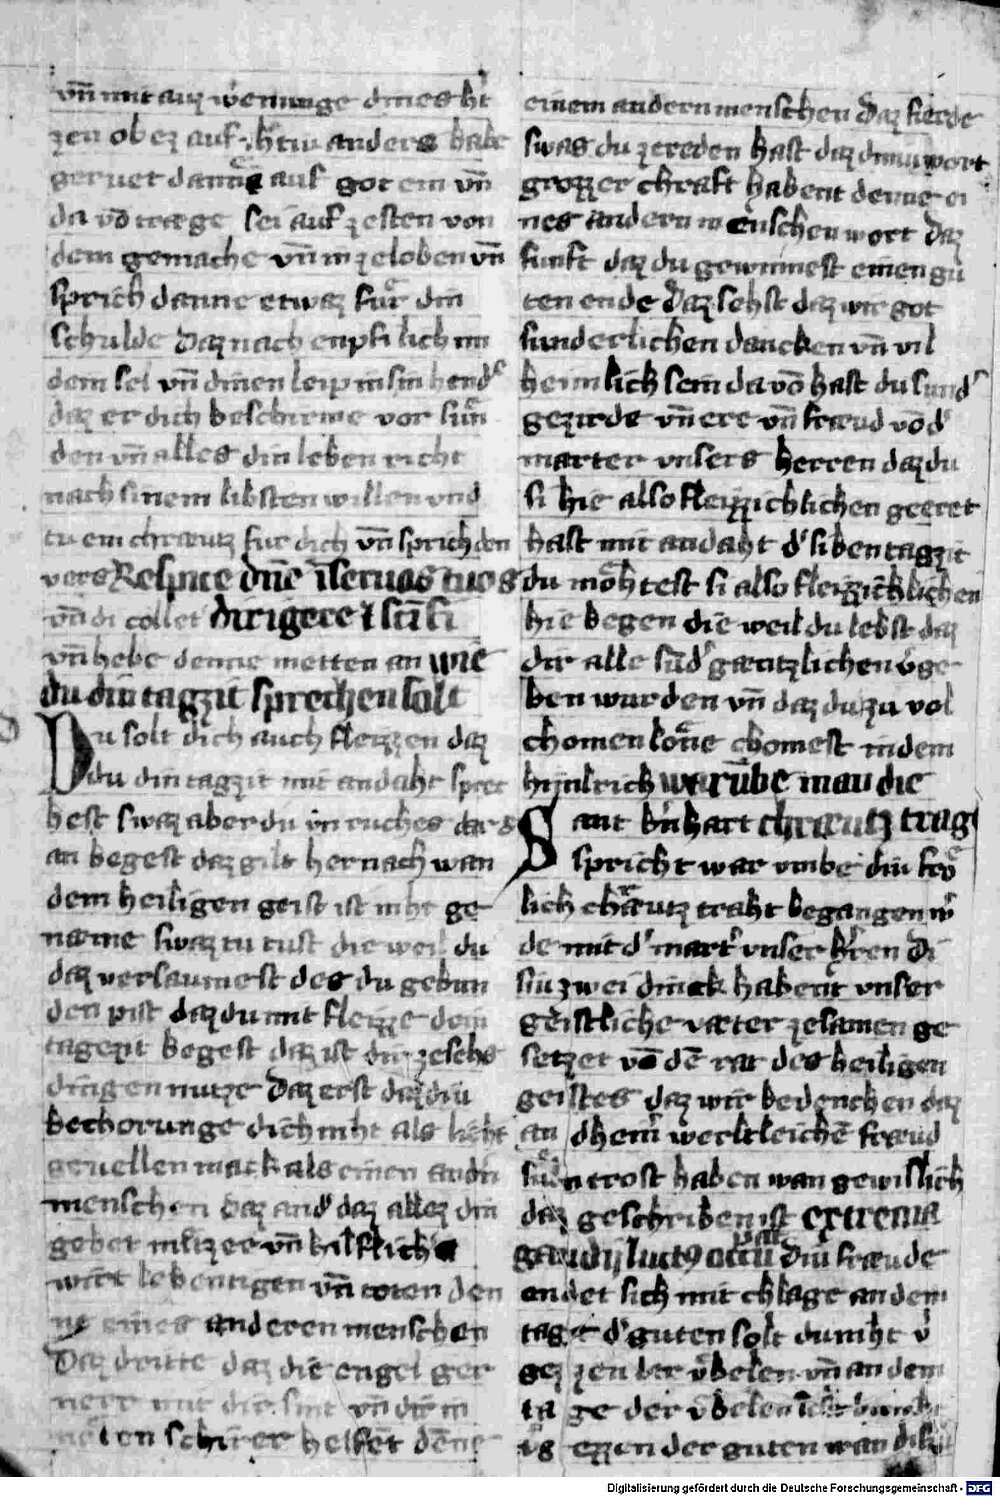 vn̄ mit auz wennige dines h't
zen obez auf
anders habe
geruet danne auf got ein vn̄
da vō træge sei auf zesten von
dem gemache vn̄ in zeloben vn̄
sprich danne etwaz fuͤr din
schulde Daz nach enpfilich im
dem sel vn̄ dinen leip in sin hend'
daz er dich beschirme vor sun
den vn̄ alles din leben richt
nach sinem libsten willen vnd
tu ein chræutz fur dich vn̄ sprich den
vers Respice dn̄e ī seruos tuos
vn̄ di collet dirigere ⁊ sc̄ifi
vn̄ hebe denne metten an wie
du din tagzit sprechen solt
Du solt dich auch fleizzen daz
du din tagzit mit andaht sprec
hest swaz aber du vnruches dar
an begest daz gilt hernach wan
dem heiligen geist ist niht ge
næme swaz tu tust die weil du
daz versaumest des du gebun
den pist daz du mit fleizze dein
tagezit begest daz ist dir zesehs
dingen nutze Daz erst daz diu
bechorunge dich niht als liht
geuellen mack als einen andn
menschen Daz and' daz allez din
gebet nutzer vn̄ hilflich
wirt lebentigen vn̄ toten den
ne eines anderen menschen
Daz dritte daz die engel ger
nere mit dir sint vn̄ dir in
noten schirer helfent denne
einem andern menschen Daz fierde
swas du zereden hast daz diniu wort
grozzer chraft habent denne ei
nes andern menschen wort Daz
funft daz du gewinnest einen gu
ten ende Daz sehst daz wir got
sunderlichen dancken vn̄ vil
heimlich sein da vō hast du sund'
gezirde vn̄ ere vn̄ fræud vō d'
marter vnsers herren daz du
si hie also fleizzichlichen geeret
hast mit andaht d' siben tagzit
du moͤhtest si also fleizzichlichen
hie begen die weil du lebst daz
dir alle sūd' gæntzlichen v'ge
ben wurden vn̄ daz du zu vol
chomen lone chomest in dem
himlrich warūbe man die
Sant b'nhart chræutz trag
spricht war vmbe diu frō
lich chræutz traht begangen w'
de mit d' mart' vnser h'ren Di
siu zwei dinck habent vnser
geistliche væter zesamen ge
setzet vō dē rat des heiligen
geistes daz wir bedenchen daz
an dheim werltleichē fræud
sūden trost haben wan gewislich
daz geschriben ist extrema
gaudij luctꝰ occupat Diu fræude
endet sich mit chlage an dem
tage d' guten solt du niht v'
gezzen der v̊belen vn̄ an dem
tage der v̊belen
v'gezzen der guten wan